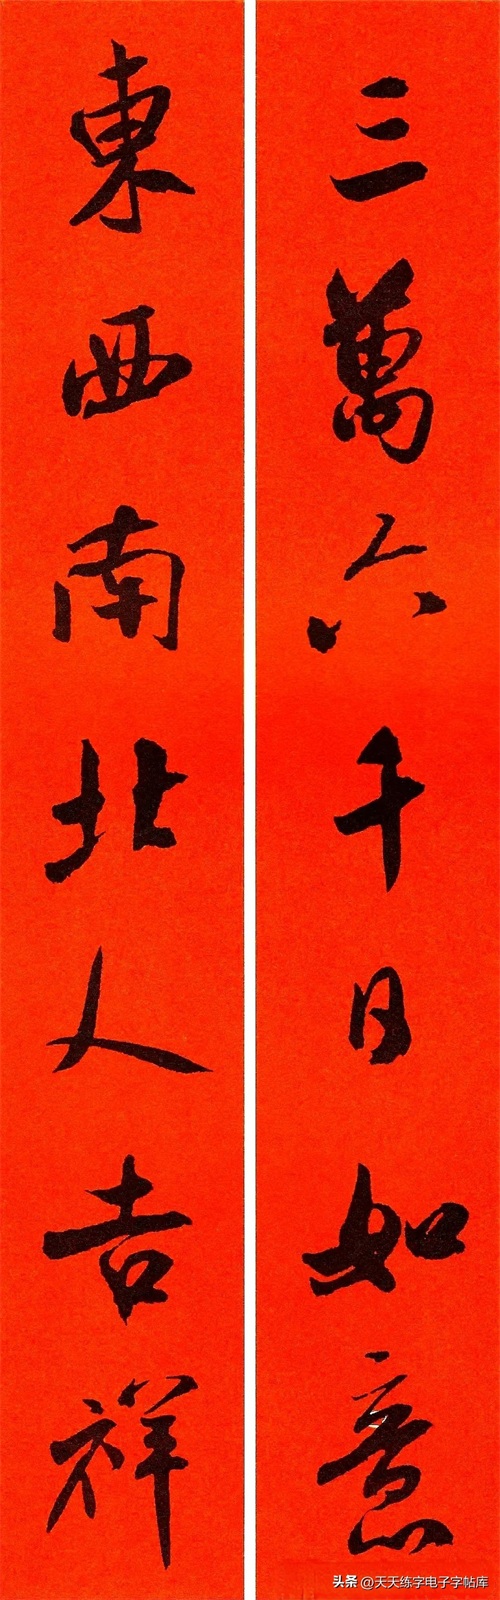 三萬六千日如意
東西南北人吉祥
头条 @天天练字电子字帖库